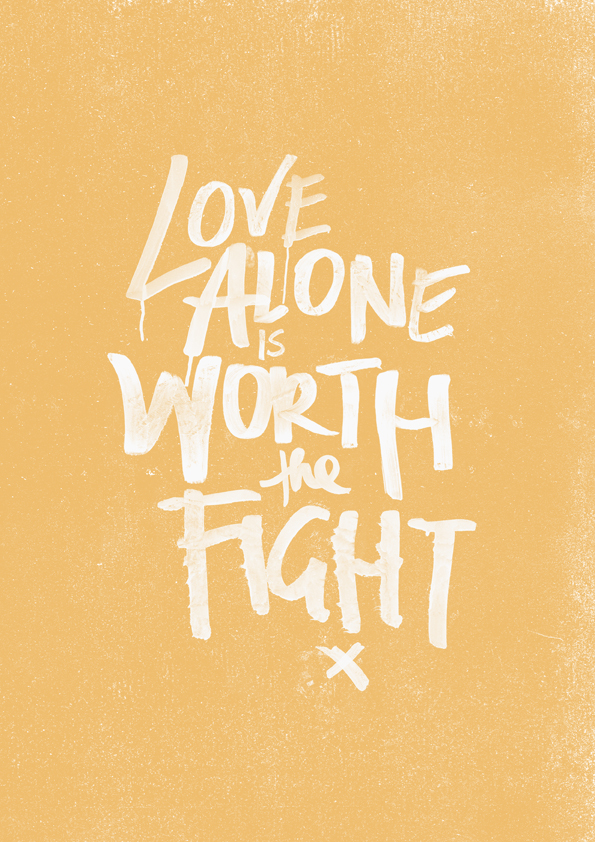 LOVE
ALONE
IS
WORTH
the
FIGHT
x